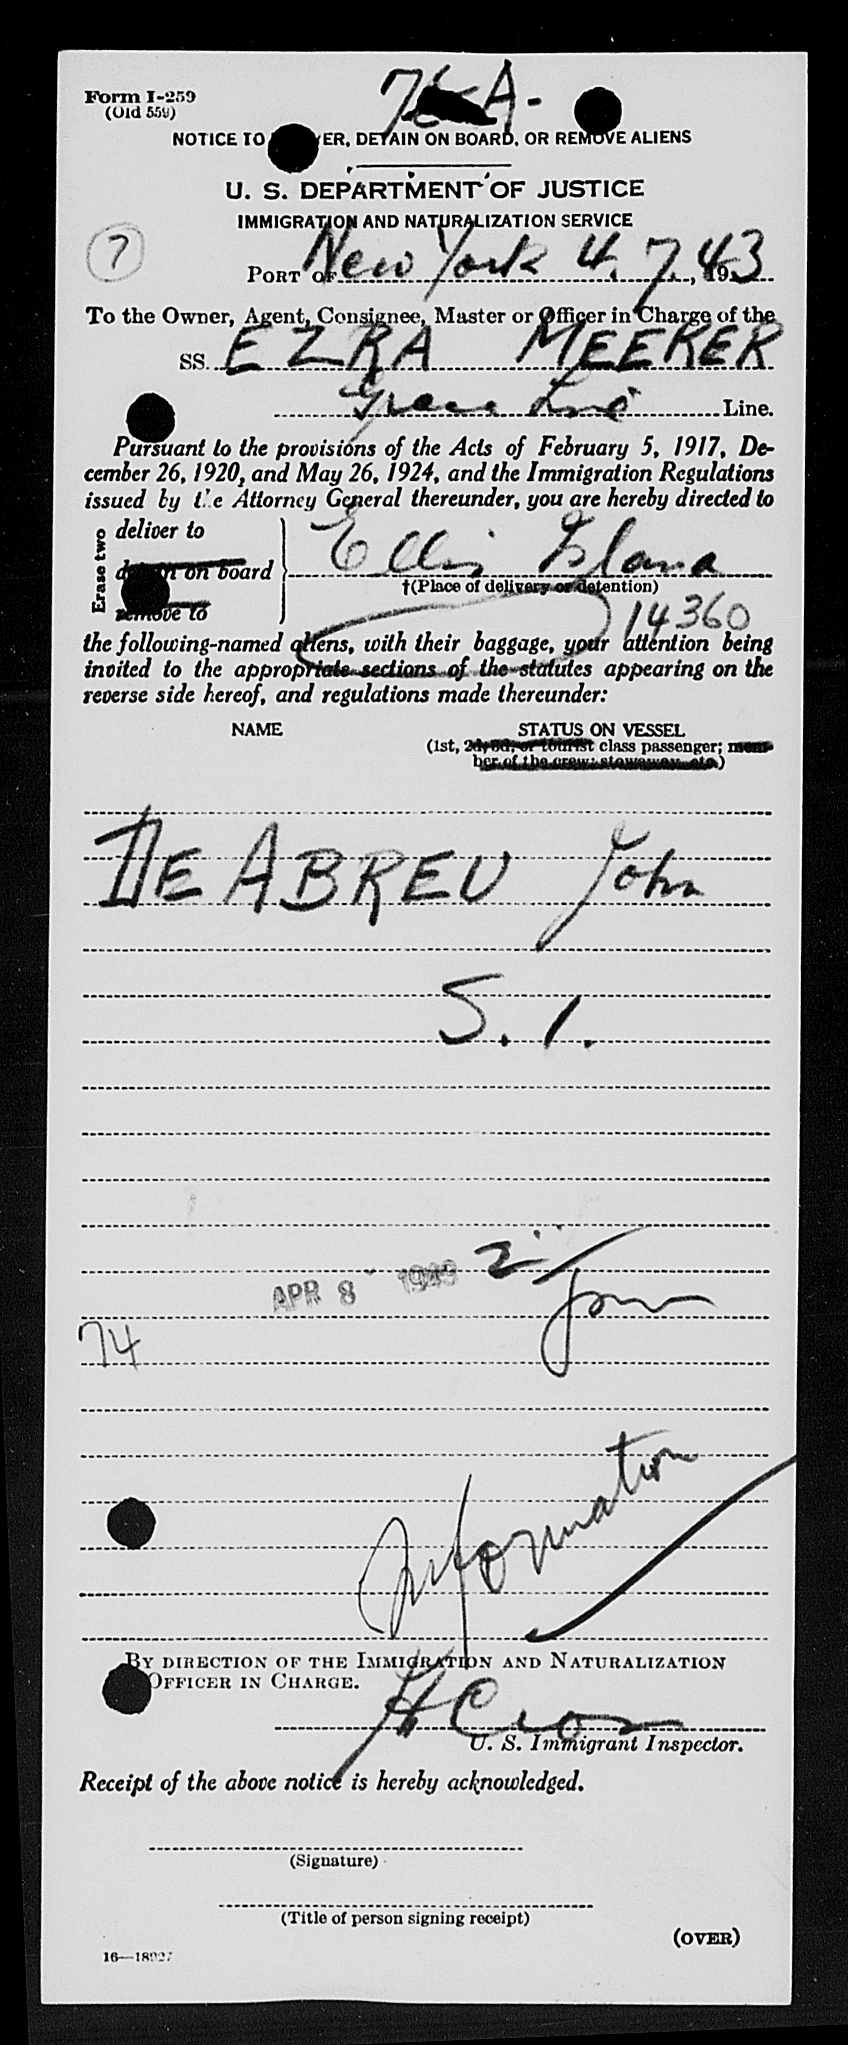 Form I-259
(Old 559)
A-
NOTICE TO ER, DETAIN ON BOARD, OR REMOVE ALIENS
U. S. DEPARTMENT OF JUSTICE
IMMIGRATION AND NATURALIZATION SERVICE
7
PORT OF New York 4.7., 1943
To the Owner, Agent, Consignee, Master or Officer in Charge of the
SS. EZRA MEEKER
Grace Line Line.
Pursuant to the provisions of the Acts of February 5, 1917, De-
cember 26, 1920, and May 26, 1924, and the Immigration Regulations
issued by the Attorney General thereunder, you are hereby directed to
Erase two
deliver to
on board
remove to
Ellis Island
†(Place of delivery or detention)
14360
the following-named aliens, with their baggage, your attention being
invited to the appropriate sections of the statutes appearing on the
reverse side hereof, and regulations made thereunder:
NAME STATUS ON VESSEL
(1st, 2d, 3d, or tourist class passenger; mem-
ber of the crew; stowaway, etc.)
DE ABREU John
S. I.
APR 8 1943
74
Information
BY DIRECTION OF THE IMMIGRATION AND NATURALIZATION
OFFICER IN CHARGE.
U. S. Immigrant Inspector.
Receipt of the above notice is hereby acknowledged.
(Signature)
(Title of person signing receipt)
(OVER)
16—18927